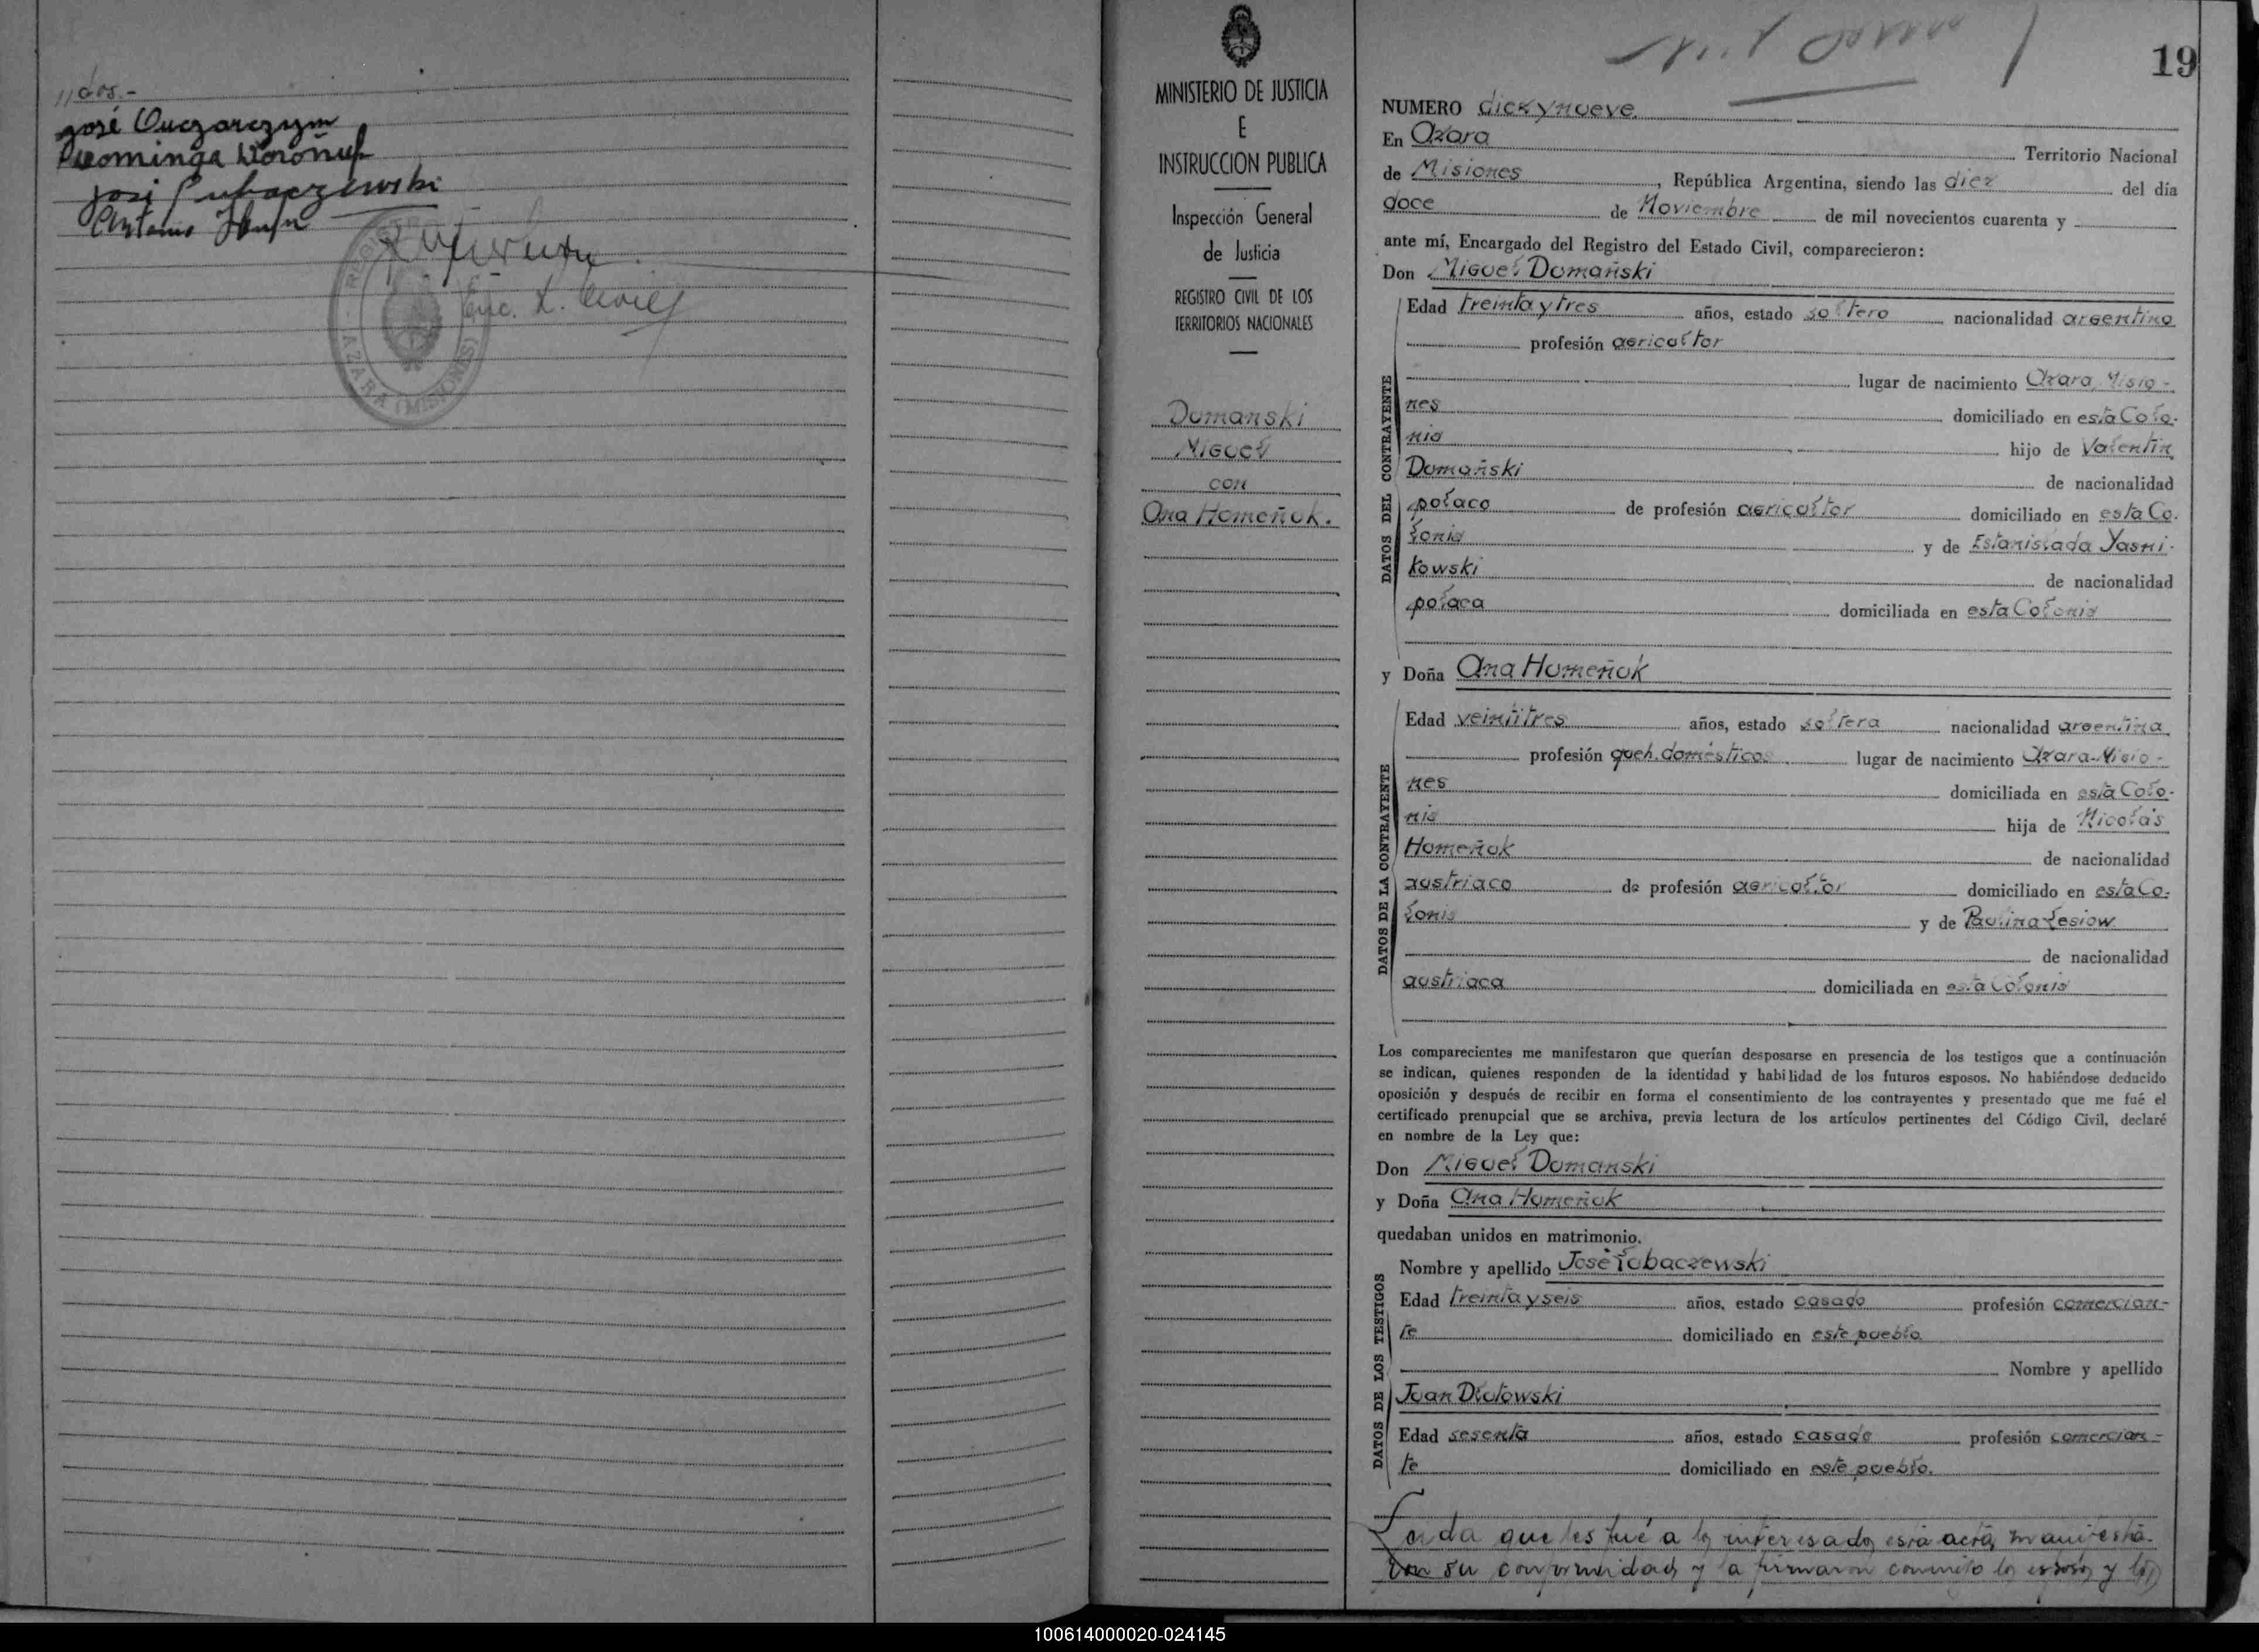 //dos.-
José Owczarczyn
Dominga Woroñuk
José Lubaczewski
Antonio
Enc. R. Civil
REGISTRO
AZARA (MISIONES)
MINISTERIO DE JUSTICIA
E
INSTRUCCION PUBLICA
Inspección General
de Justicia
REGISTRO CIVIL DE LOS
TERRITORIOS NACIONALES
Dumanski
Miguel
con
Ana Humeñuk.
19
NUMERO diez y nueve.
En Azara Territorio Nacional
de Misiones, República Argentina, siendo las diez del día
doce de Noviembre de mil novecientos cuarenta y
ante mí, Encargado del Registro del Estado Civil, comparecieron:
Don Miguel Dumañski
DATOS DEL CONTRAYENTE
Edad treinta y tres años, estado soltero nacionalidad argentino
profesión agricultor
lugar de nacimiento Azara, Misio-
nes domiciliado en esta Colo-
nia hijo de Valentin
Dumañski de nacionalidad
polaco de profesión agricultor domiciliado en esta Co-
lonia y de Estanislada Yasni-
kowski de nacionalidad
polaca domiciliada en esta Colonia
y Doña Ana Humeñuk
DATOS DE LA CONTRAYENTE
Edad veintitres años, estado soltera nacionalidad argentina
profesión queh. domésticos lugar de nacimiento Azara-Misio-
nes domiciliada en esta Colo-
nia hija de Nicolás
Humeñuk de nacionalidad
austriaco de profesión agricultor domiciliado en esta Co-
lonia y de Paulina Lesiow
de nacionalidad
austriaca domiciliada en esta Colonia
Los comparecientes me manifestaron que querían desposarse en presencia de los testigos que a continuación
se indican, quienes responden de la identidad y habilidad de los futuros esposos. No habiéndose deducido
oposición y después de recibir en forma el consentimiento de los contrayentes y presentado que me fué el
certificado prenupcial que se archiva, previa lectura de los artículos pertinentes del Código Civil, declaré
en nombre de la Ley que:
Don Miguel Dumanski
y Doña Ana Humeñuk
quedaban unidos en matrimonio.
DATOS DE LOS TESTIGOS
Nombre y apellido José Lubaczewski
Edad treinta y seis años, estado casado profesión comercian-
te domiciliado en este pueblo
Nombre y apellido
Juan Dlutowski
Edad sesenta años, estado casado profesión comercian-
te domiciliado en este pueblo.
Leida que les fué a los interesados esta acta, manifesta-
ron su conformidad y la firmaron conmigo los esposos y los//
100614000020-024145